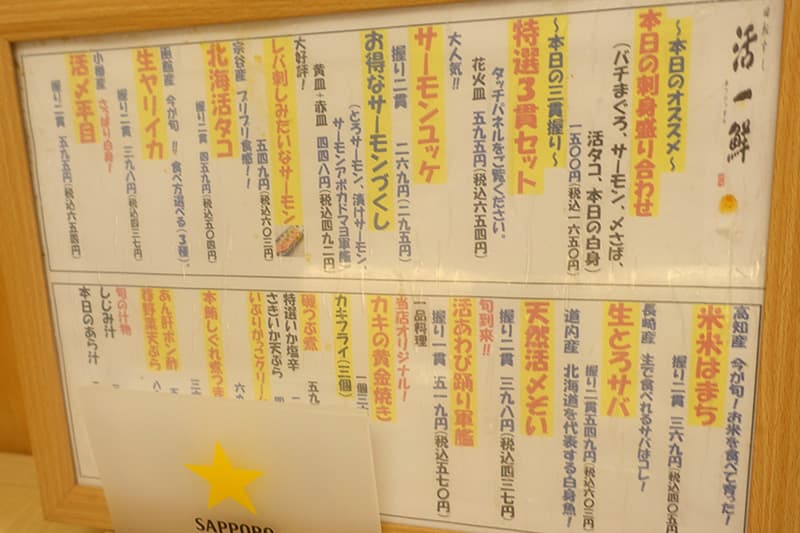 回転すし
活一鮮
～本日のオススメ～
本日の刺身盛り合わせ
(バチまぐろ、サーモン、〆さば、
活タコ、本日の白身)
一五〇〇円(税込一六五〇円)
～本日の三貫握り～
特選3貫セット
タッチパネルをご覧ください。
花火皿 五九五円(税込六五四円)
大人気!!
サーモンユッケ
握り二貫 二六九円(二九五円)
お得なサーモンづくし
(とろサーモン、漬けサーモン、
サーモンアボカドマヨ軍艦)
黄皿+赤皿 四四八円(税込四九二円)
大好評!
レバ刺しみたいなサーモン
五四九円(税込六〇三円)
宗谷産 プリプリ食感!!
北海活タコ
握り二貫 四五九円(税込五〇四円)
函館産 今が旬!! 食べ方選べる(3種)。
生ヤリイカ
握り二貫 三九八円(税込四三七円)
小樽産 さっぱり白身!
活〆平目
握り二貫 五九五円(税込六五四円)
高知産 今が旬!お米を食べて育った!
米米はまち
握り二貫 三六九円(税込四〇五円)
長崎産 生で食べれるサバはコレ!
生とろサバ
握り二貫五四九円(税込六〇三円)
道内産 北海道を代表する白身魚!
天然活〆そい
握り二貫 三九八円(税込四三七円)
旬到来!!
活あわび踊り軍艦
握り一貫 五一九円(税込五七〇円)
一品料理
当店オリジナル!
カキの黄金焼き
一個三
カキフライ(三個)
五九
磯つぶ煮
特選いか塩辛
さきいか天ぷら
四
いぶりがっこクリー
六九
本鮪しぐれ煮つま
三
あん肝ポン酢
春野菜天ぷら
旬の汁物
しじみ汁
本日のあら汁
SAPPORO